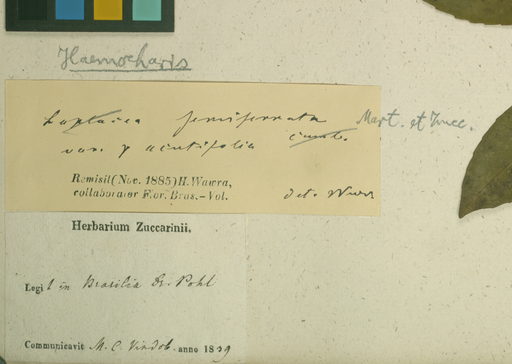 Haemocharis
Laplacea semiserrata Mart. et Zucc.
var. γ acutifolia Camb.
Remisit (Nov. 1885) H. Wawra,
collaborator Flor. Bras.-Vol.
det. Wawra
Herbarium Zuccarinii.
Legit in Brasilia Dr. Pohl
Communicavit M. C. Vindob. anno 1839